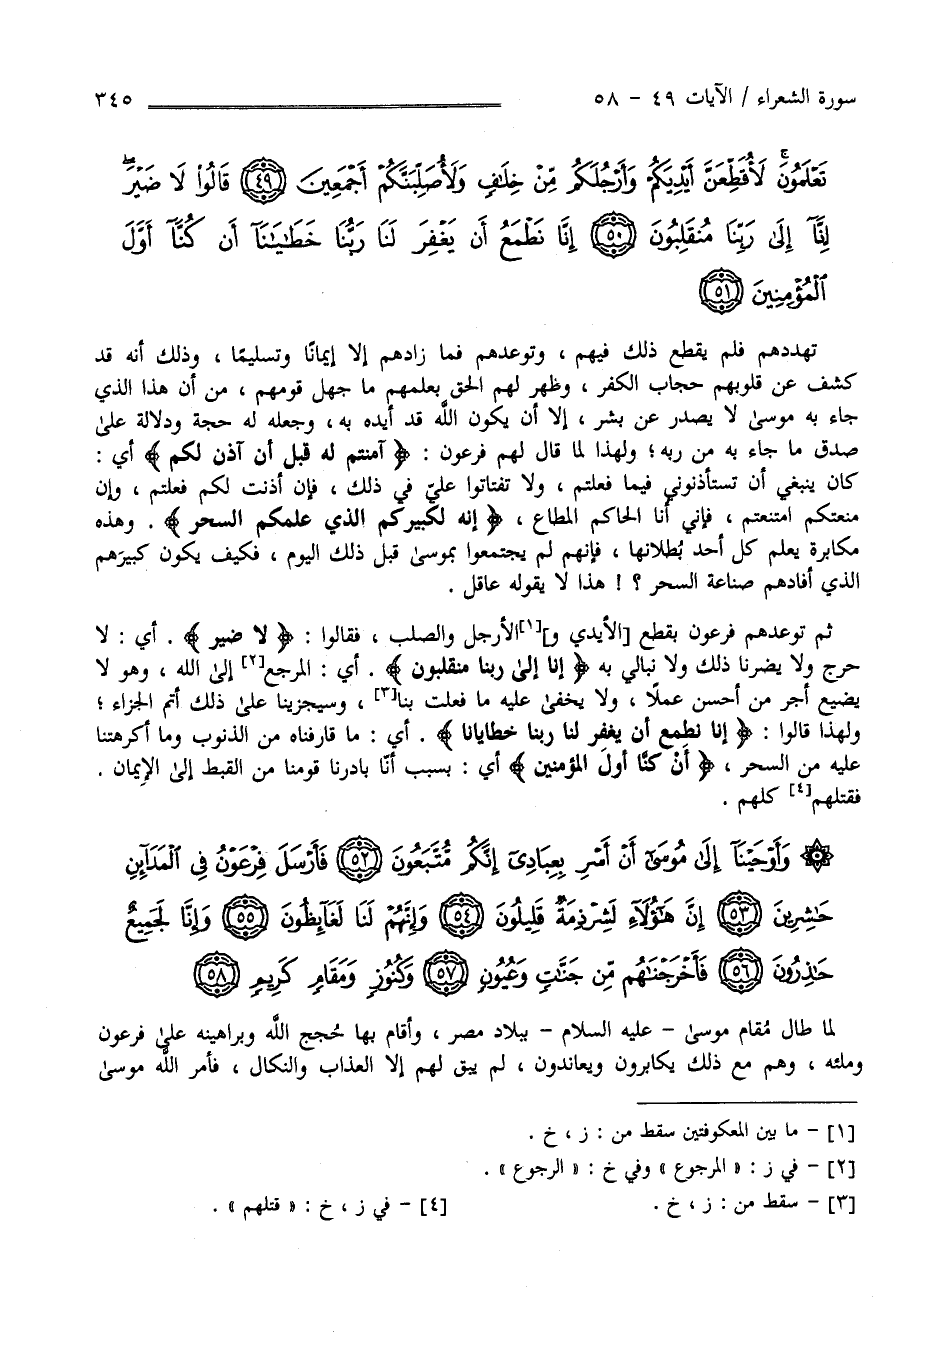 سورة الشعراء / الآيات ٤٩ - ٥٨ ٣٤٥
تَعْلَمُونَ ۚ لَأُقَطِّعَنَّ أَيْدِيَكُمْ وَأَرْجُلَكُم مِّنْ خِلَٰفٍ وَلَأُصَلِّبَنَّكُمْ أَجْمَعِينَ ٤٩ قَالُوا۟ لَا ضَيْرَ ۖ
إِنَّآ إِلَىٰ رَبِّنَا مُنقَلِبُونَ ٥٠ إِنَّا نَطْمَعُ أَن يَغْفِرَ لَنَا رَبُّنَا خَطَٰيَٰنَآ أَن كُنَّآ أَوَّلَ
ٱلْمُؤْمِنِينَ ٥١
تهددهم فلم يقطع ذلك فيهم ، وتوعدهم فما زادهم إلا إيمانًا وتسليمًا ، وذلك أنه قد
كشف عن قلوبهم حجاب الكفر ، وظهر لهم الحق بعلمهم ما جهل قومهم ، من أن هذا الذي
جاء به موسىٰ لا يصدر عن بشر ، إلا أن يكون اللَّه قد أيده به ، وجعله له حجة ودلالة علىٰ
صدق ما جاء به من ربه ؛ ولهذا لما قال لهم فرعون : ﴿ آمنتم له قبل أن آذن لكم ﴾ أي :
كان ينبغي أن تستأذنوني فيما فعلتم ، ولا تفتاتوا عليّ في ذلك ، فإن أذنت لكم فعلتم ، وإن
منعتكم امتنعتم ، فإني أنا الحاكم المطاع ، ﴿ إنه لكبيركم الذي علمكم السحر ﴾ . وهذه
مكابرة يعلم كل أحد بُطلانها ، فإنهم لم يجتمعوا بموسىٰ قبل ذلك اليوم ، فكيف يكون كبيرَهم
الذي أفادهم صناعة السحر ؟ ! هذا لا يقوله عاقل .
ثم توعدهم فرعون بقطع [الأيدي و][١]الأرجل والصلب ، فقالوا : ﴿ لا ضير ﴾ . أي : لا
حرج ولا يضرنا ذلك ولا نبالي به ﴿ إنا إلىٰ ربنا منقلبون ﴾ . أي : المرجع[٢] إلىٰ الله ، وهو لا
يضيع أجر من أحسن عملًا ، ولا يخفىٰ عليه ما فعلت بنا[٣] ، وسيجزينا علىٰ ذلك أتم الجزاء ؛
ولهذا قالوا : ﴿ إنا نطمع أن يغفر لنا ربنا خطايانا ﴾ . أي : ما قارفناه من الذنوب وما أكرهتنا
عليه من السحر ، ﴿ أَنْ كنَّا أولَ المؤمنين ﴾ أي : بسبب أنّا بادرنا قومنا من القبط إلىٰ الإيمان .
فقتلهم[٤] كلهم .
۞ وَأَوْحَيْنَآ إِلَىٰ مُوسَىٰٓ أَنْ أَسْرِ بِعِبَادِىٓ إِنَّكُم مُّتَّبَعُونَ ٥٢ فَأَرْسَلَ فِرْعَوْنُ فِى ٱلْمَدَآئِنِ
حَٰشِرِينَ ٥٣ إِنَّ هَٰٓؤُلَآءِ لَشِرْذِمَةٌ قَلِيلُونَ ٥٤ وَإِنَّهُمْ لَنَا لَغَآئِظُونَ ٥٥ وَإِنَّا لَجَمِيعٌ
حَٰذِرُونَ ٥٦ فَأَخْرَجْنَٰهُم مِّن جَنَّٰتٍ وَعُيُونٍ ٥٧ وَكُنُوزٍ وَمَقَامٍ كَرِيمٍ ٥٨
لما طال مُقام موسىٰ - عليه السلام - ببلاد مصر ، وأقام بها حُجج اللَّه وبراهينه علىٰ فرعون
وملئه ، وهم مع ذلك يكابرون ويعاندون ، لم يبق لهم إلا العذاب والنكال ، فأمر اللَّه موسىٰ
[١] - ما بين المعكوفتين سقط من : ز ، خ .
[٢] - في ز : « المرجوع » وفي خ : « الرجوع » .
[٣] - سقط من : ز ، خ . [٤] - في ز ، خ : « قتلهم » .